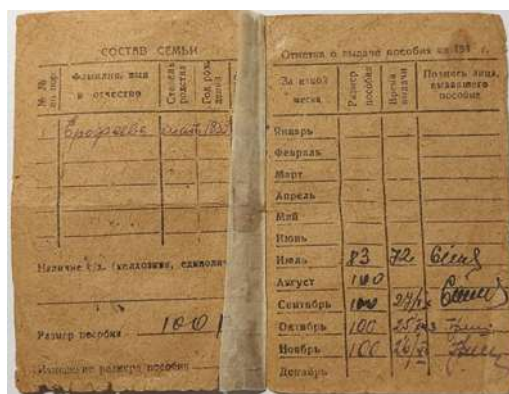 СОСТАВ СЕМЬИ
№ № по пор.
Фамилия, имя и отчество
Степень родства
Год рождения
1 Ерофеева мать
Наличие к/х. (колхозник, единолич
Размер пособия 100 р
Изменение размера пособия
Отметка о выдаче пособия за 194 г.
За какой месяц
Размер пособия
Время выдачи
Подпись лица, выдавшего пособие
Январь
Февраль
Март
Апрель
Май
Июнь
Июль 83
Август 100
Сентябрь 100
Октябрь 100
Ноябрь 100
Декабрь